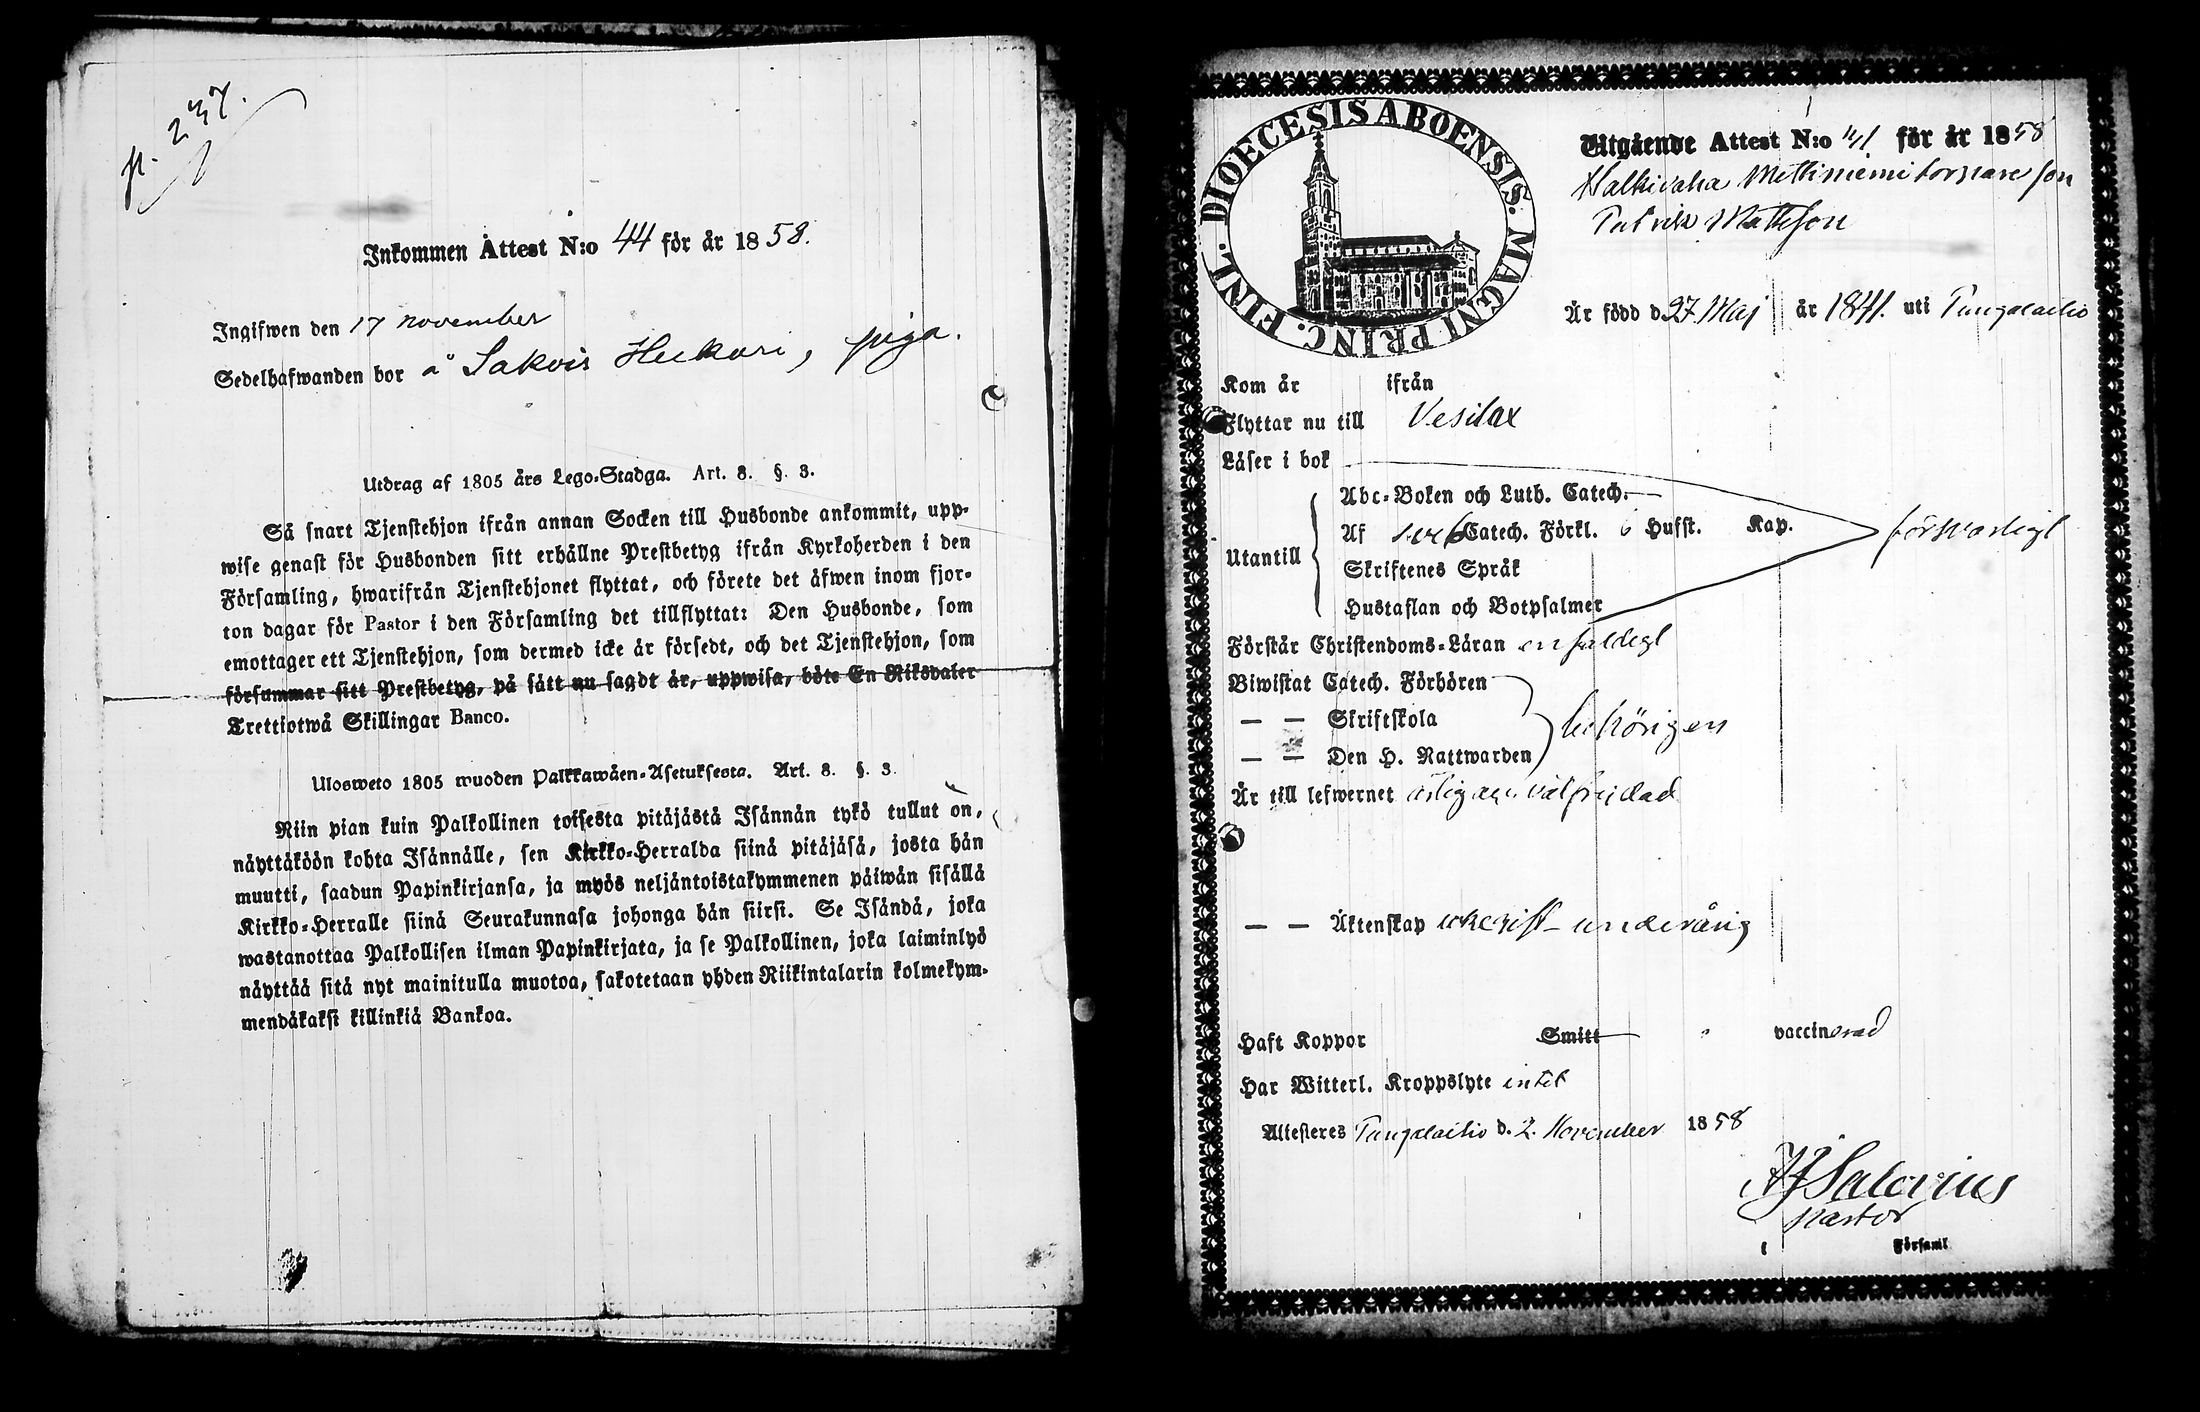 p. 237.
Inkommen Attest N:o 44 för år 1858.
Ingifwen den 17 november
Sedelhafwanden bor å Sakois Heikari, piga.
Utdrag af 1805 års Lego-Stadga. Art. 8. §. 3.
Så snart Tjenstehjon ifrån annan Socken till Husbonde ankommit, upp-
wise genast för Husbonden sitt erhållne Prestbetyg ifrån Kyrkoherden i den
Församling, hwarifrån Tjenstehjonet flyttat, och förete det äfwen inom fjor-
ton dagar för Pastor i den Församling det tillflyttat: Den Husbonde, som
emottager ett Tjenstehjon, som dermed icke är försedt, och det Tjenstehjon, som
försummar sitt Prestbetyg, på sätt nu sagdt är, uppwisa, böte En Riksdaler
Trettiotwå Skillingar Banco.
Ulosweto 1805 wuoden Palkkawäen-Asetuksesta. Art. 8. §. 3.
Niin pian kuin Palkollinen toisesta pitäjästä Isännän tykö tullut on,
näyttäköön kohta Isännälle, sen Kirkko-Herralda siinä pitäjäsä, josta hän
muutti, saadun Papinkirjansa, ja myös neljäntoistakymmenen päiwän sisällä
Kirkko-Herralle siinä Seurakunnasa johonga hän siirsi. Se Isändä, joka
wastanottaa Palkollisen ilman Papinkirjata, ja se Palkollinen, joka laiminlyö
näyttää sitä nyt mainitulla muotoa, sakotetaan yhden Riikintalarin kolmekym-
mendäkaksi killinkiä Bankoa.
DIOECESIS ABOENSIS. MAGNI PRINC. FINL.
Utgående Attest N:o 41 för år 1858
Halkivaha Mattson
Är född d. 27 Maj år 1841. uti Pungalaitio
Kom år ifrån
Flyttar nu till Vesilax
Läser i bok
Utantill
Abc-Boken och Luth. Catech.
Af Catech. Förkl. Hufst. Kap.
Skriftenes Språk
Hustaflan och Botpsalmer
försvarligt
Förstår Christendoms-Läran enfaldigt
Biwistat Catech. Förhören
— — Skriftskola
— — Den H. Nattwarden
behörigen
Är till lefwernet ärlig och välfrejdad
— — Äktenskap underårig
Haft Koppor Smitt vaccinerad
Har Witterl. Kroppslyte intet
Attesteres Pungalaitio d. 2. November 1858
Salovius
Pastor
i Församl